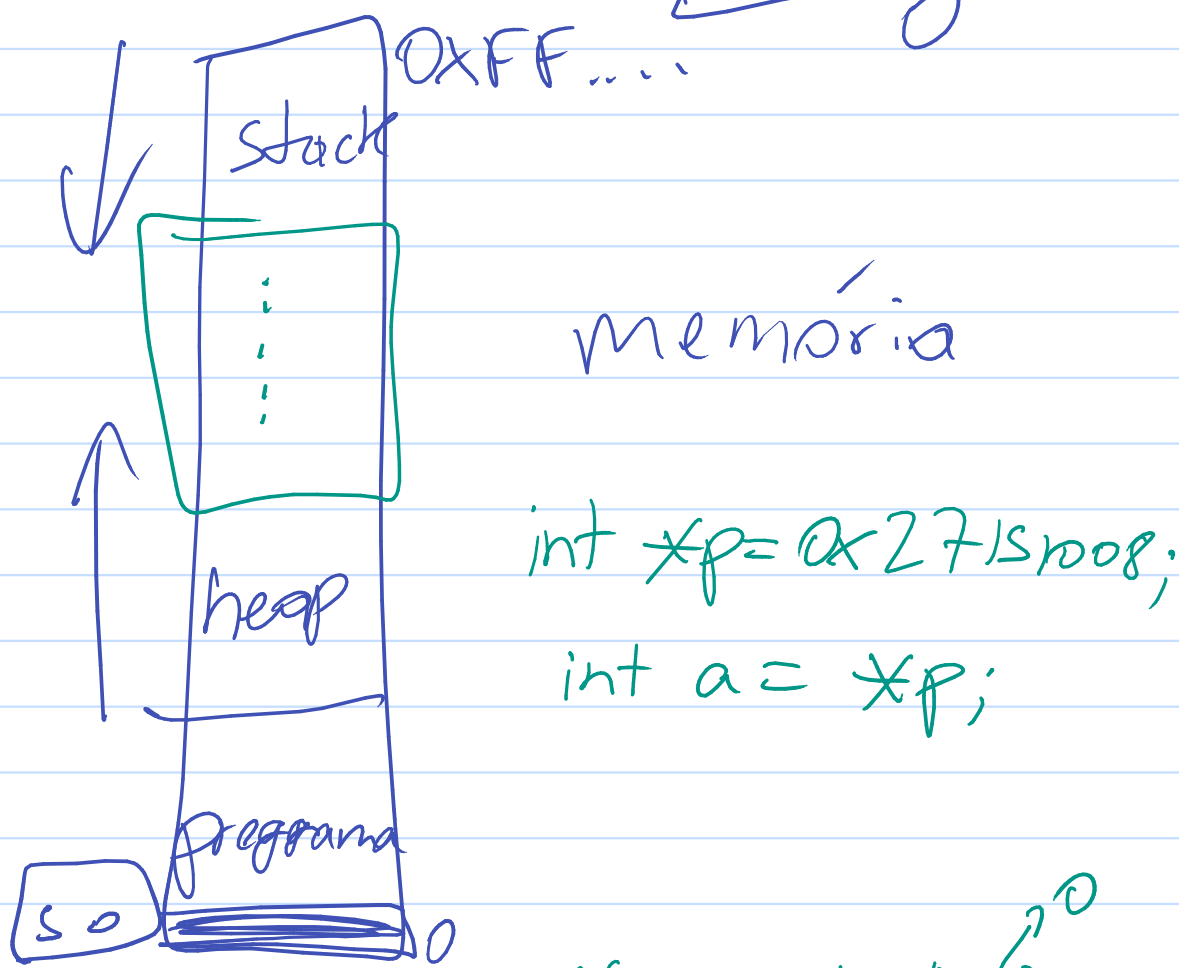 0xFF....
stack
memória
int *p = 0x2715r008;
heap
int a = *p;
programa
SO
0
0